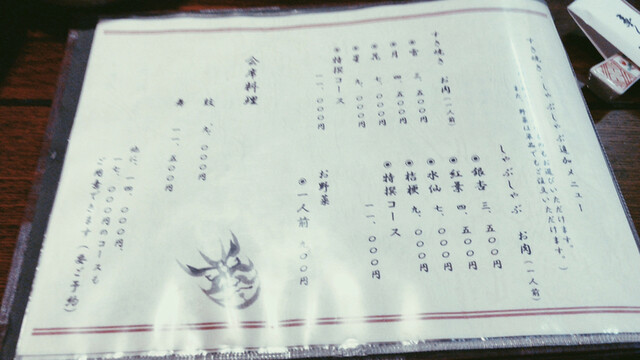 すき焼き・しゃぶしゃぶ追加メニュー
お選びいただけます。
また、野菜は単品でもご注文いただけます。)
すき焼き お肉(一人前)
雪 三、五〇〇円
月 四、五〇〇円
花 七、〇〇〇円
星 九、〇〇〇円
特撰コース
一一、〇〇〇円
しゃぶしゃぶ お肉(一人前)
銀杏 三、五〇〇円
紅葉 四、五〇〇円
水仙 七、〇〇〇円
桔梗 九、〇〇〇円
特撰コース
一一、〇〇〇円
お野菜
一人前 九〇〇円
会席料理
九、〇〇〇円
一一、五〇〇円
一四、〇〇〇円
一七、〇〇〇円のコースも
ご用意できます(要ご予約)